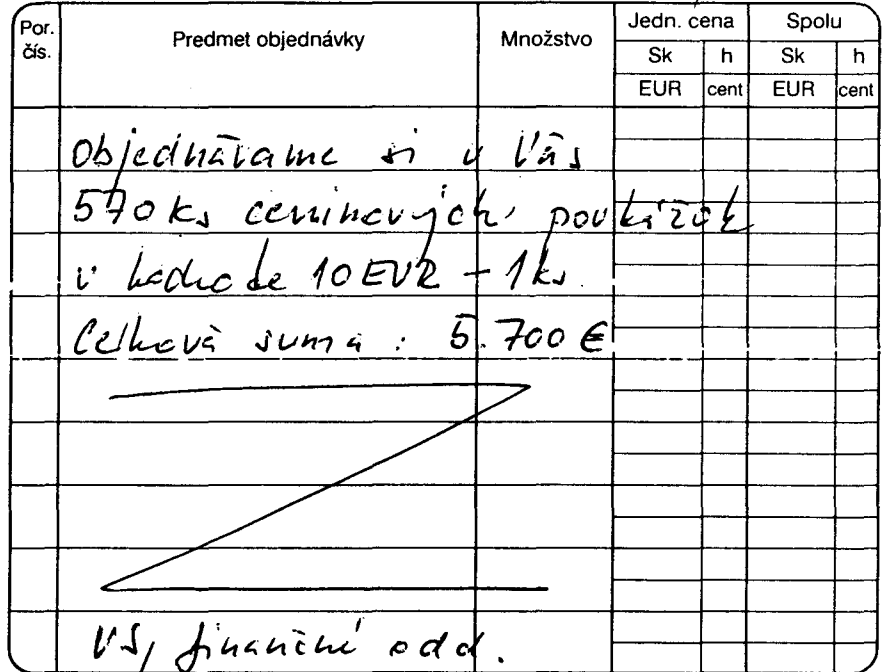 Por. čís. Predmet objednávky Množstvo Jedn. cena Spolu
Sk h Sk h
EUR cent EUR cent
Objednávame si u Vás
570 ks ceninových poukážok
v hodnote 10 EUR - 1ks
Celková suma : 5.700 €
VS, finančné odd.